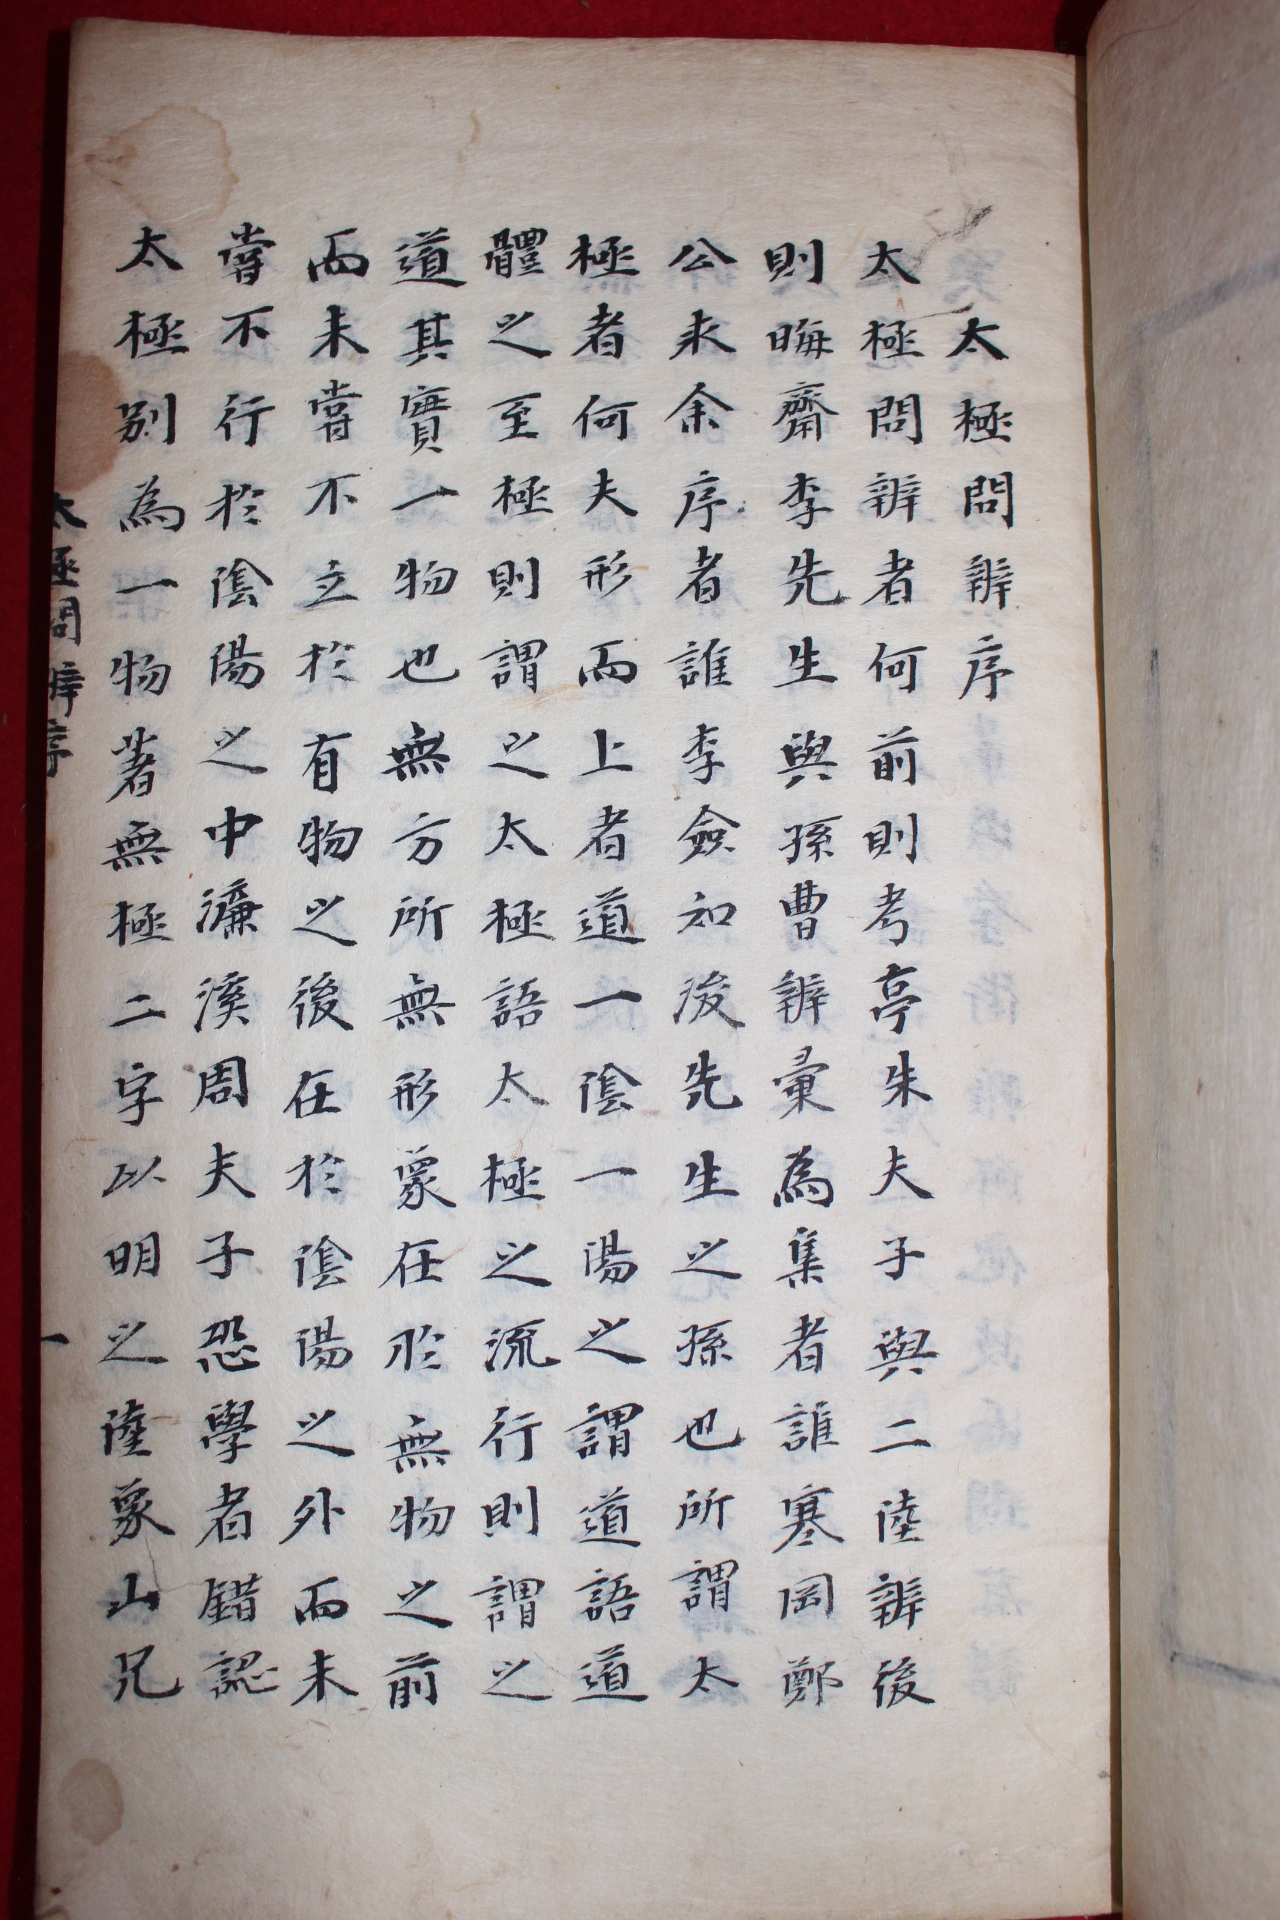 太極問辨序
太極問辨者何前則考亭朱夫子與二陸辨後
則晦齋李先生與孫曹辨彙為集者誰寒岡鄭
公求余序者誰李僉知浚先生之孫也所謂太
極者何夫形而上者道一陰一陽之謂道語道
體之至極則謂之太極語太極之流行則謂之
道其實一物也無方所無形象在於無物之前
而未嘗不立於有物之後在於陰陽之外而未
嘗不行於陰陽之中濂溪周夫子恐學者錯認
太極別為一物著無極二字以明之陸象山兄
太極問辨序
一